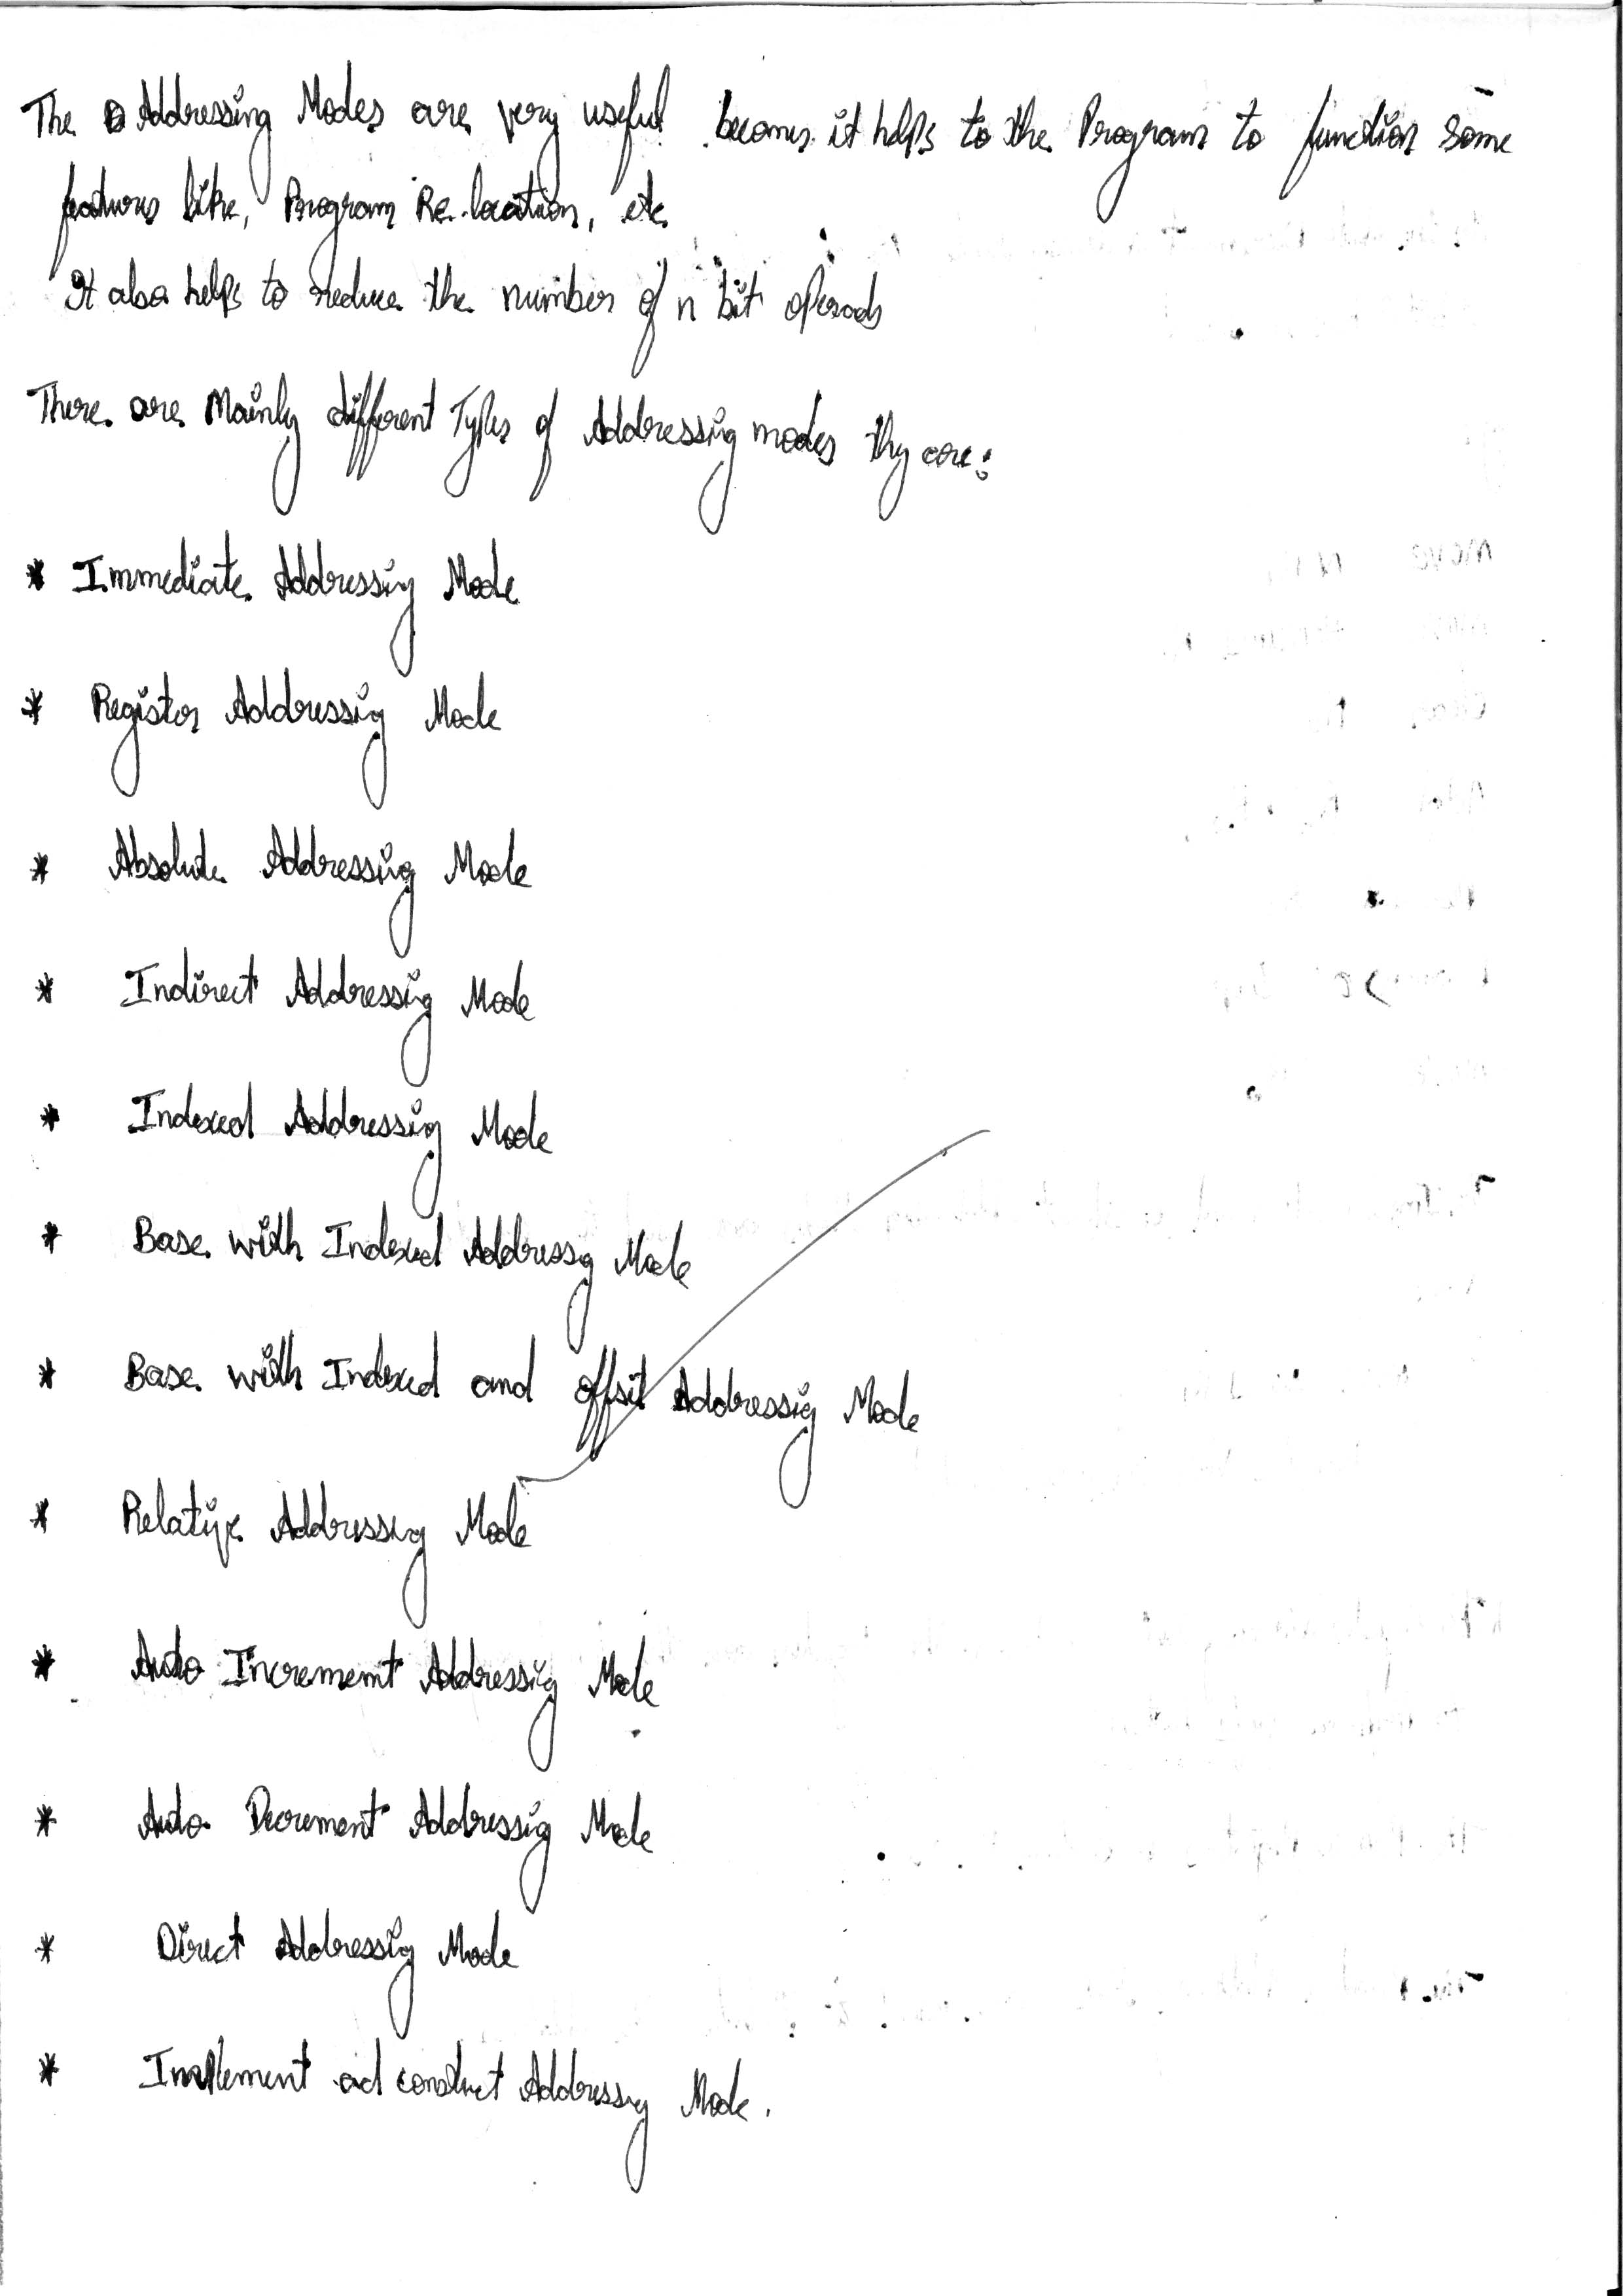 The Addressing Modes are very useful becomes it helps to the Program to function some
features like, Program Re-location, etc
It also helps to reduce the number of n bit operads
There are Mainly different Types of Addressing modes thy are:
* Immediate Addressing Mode
* Register Addressing Mode
* Absolute Addressing Mode
* Indirect Addressing Mode
* Indexed Addressing Mode
* Base with Indexed Addressg Mode
* Base with Indexed and offsit Addressig Mode
* Relative Addressig Mode
* Auto Increment Addressig Mode
* Auto Decrement Addressig Mode
* Direct Addressig Mode
* Implement ad construct Addressg Mode.